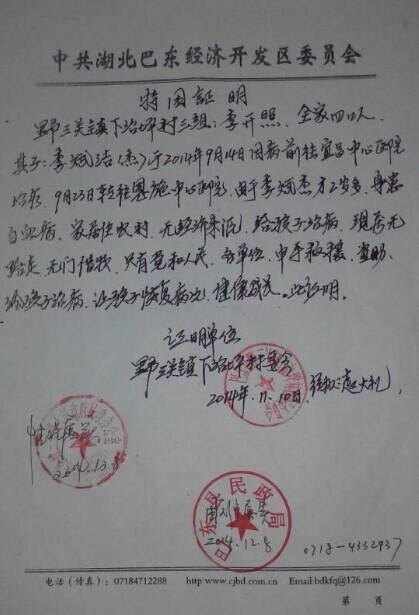 中共湖北巴东经济开发区委员会
特困证明
野三关镇下谷坪村三组：李开照，全家四口人
其子：李斌洁(杰)于2014年9月14日因病前往宜昌中心医院
治疗，9月23日转往恩施中心医院，由于李斌杰才2岁多，身患
白血病，家居住农村，无经济来源，给孩子治病，现在无
路走，无门借钱，只有党和人民，各单位，伸手救援，资助
孩子治病，让孩子恢复病况，健康成长。此证明。
证明单位
野三关镇下谷坪村委会
2014年11月10日
情况属实
2014.12.8
巴东县民政局
情况属实
2014.12.8
0718-4332937
电话（传真）：07184712288 http://www.cjbd.com.cn Email:bdkfq@126.com
第 页